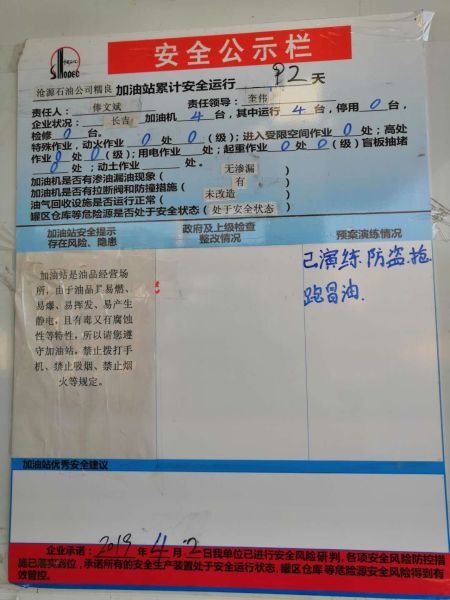 SINOPEC
安全公示栏
沧源石油公司糯良 加油站累计安全运行 92 天
责任人: 俸文斌 责任领导: 奎伟
企业状况: 长吉 加油机 4 台,其中运行 4 台,停用 0 台,
检修 0 台。
特殊作业,动火作业 0 处 0 (级);进入受限空间作业 0 处;高处
作业 0 处 0 (级);用电作业 0 处;起重作业 0 处 0 处;盲板抽堵
作业 0 处;动土作业 处。
加油机是否有渗油漏油现象( 无渗漏 )
加油机是否有拉断阀和防撞措施( 有 )
油气回收设施是否运行正常( 未改造 )
罐区仓库等危险源是否处于安全状态( 处于安全状态 )
加油站安全提示
存在风险、隐患
政府及上级检查
整改情况
预案演练情况
加油站是油品经营场
所,由于油品具易燃、
易爆、易挥发、易产生
静电,且有毒又有腐蚀
性等特性,所以请您遵
守加油站,禁止拨打手
机、禁止吸烟、禁止烟
火等规定。
已演练 防盗抢
跑冒油.
加油站优秀安全建议
企业承诺: 2019 年 4 月 2 日我单位已进行安全风险研判,各项安全风险防控措
施已落实到位,承诺所有的安全生产装置处于安全运行状态,罐区仓库等危险源安全风险得到有
效管控。